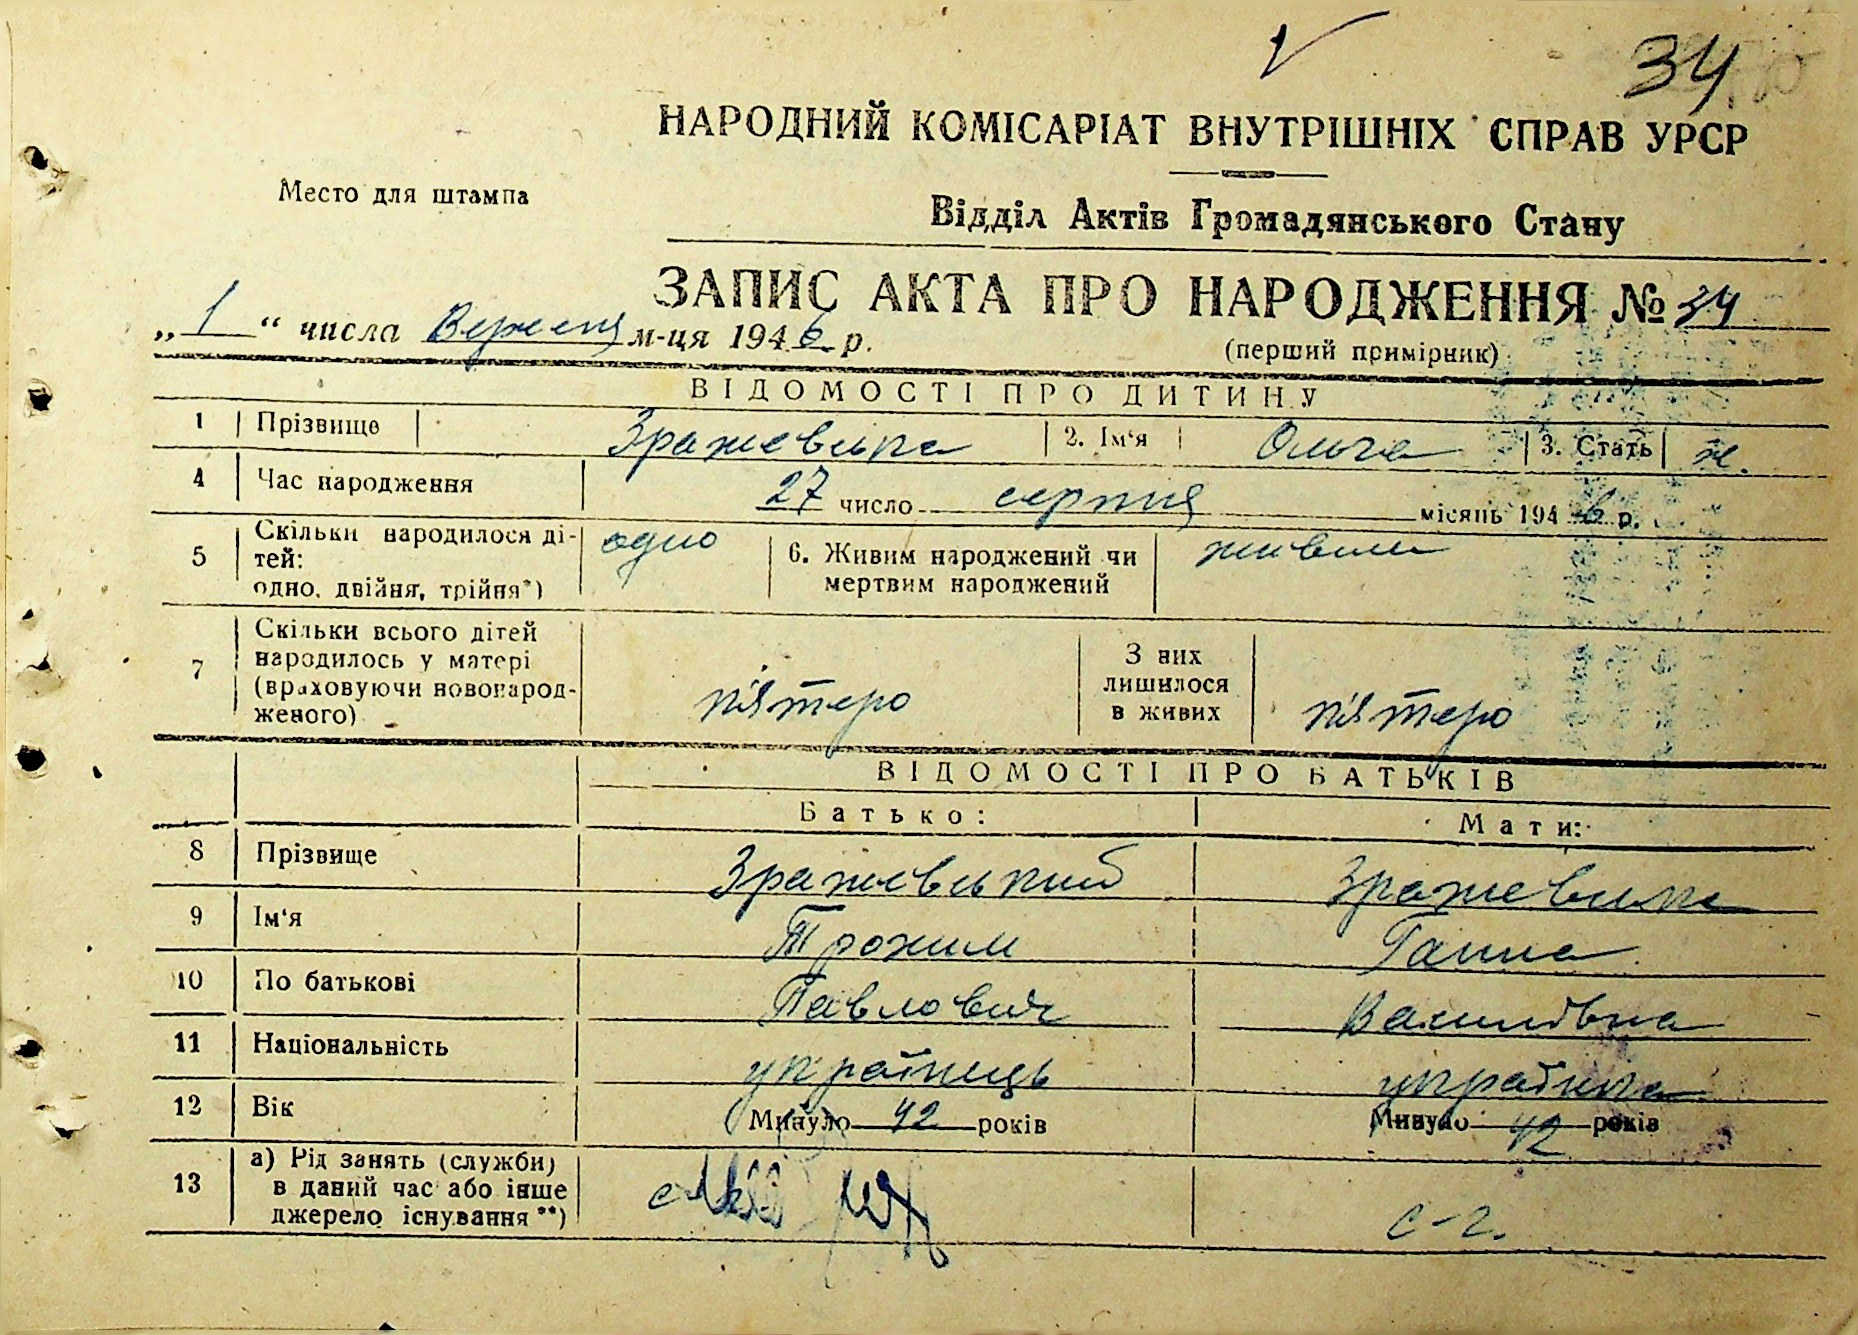 34
НАРОДНИЙ КОМІСАРІАТ ВНУТРІШНІХ СПРАВ УРСР
Место для штампа
Відділ Актів Громадянського Стану
ЗАПИС АКТА ПРО НАРОДЖЕННЯ № 34
„1“ числа Вересня м-ця 1946 р.
(перший примірник)
ВІДОМОСТІ ПРО ДИТИНУ
1 Прізвище Зражевська 2. Ім‘я Ольга 3. Стать ж.
4 Час народження 27 число серпня місяць 1946 р.
5 Скільки народилося ді-
тей:
одно, двійня, трійня*)
одно
6. Живим народжений чи
мертвим народжений
живим
7 Скільки всього дітей
народилось у матері
(враховуючи новонарод-
женого)
п'ятеро
З них
лишилося
в живих
п'ятеро
ВІДОМОСТІ ПРО БАТЬКІВ
Батько: Мати:
8 Прізвище Зражевський Зражевська
9 Ім‘я Трохим Ганна
10 По батькові Павлович Василівна
11 Національність українець українка
12 Вік Минуло 42 років Минуло 42 років
13 а) Рід занять (служби)
в даний час або інше
джерело існування **)
с-г.